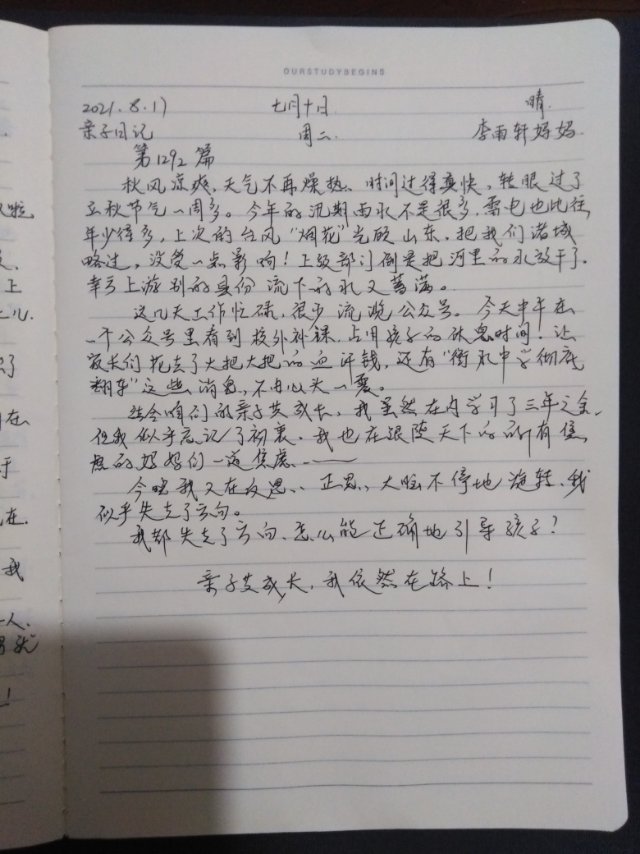 OURSTUDYBEGINS
2021.8.17 七月十日 晴.
亲子日记 周二. 李雨轩妈妈.
第1292篇
秋风凉爽,天气不再燥热。时间过得真快,转眼过了
立秋节气一周多。今年的汛期雨水不是很多,雷电也比往
年少得多,上次的台风"烟花"光顾山东,把我们诸城
略过,没受一点影响!上级部门倒是把河里的水放干了.
幸亏上游别的省份流下的水又蓄满。
这几天工作忙碌,很少流览公众号。今天中午在
一个公众号里看到校外补课,占用孩子的休息时间,让
家长们花去了大把大把的血汗钱,还有"衡水中学彻底
翻车"这些消息,不由心头一震。
结合咱们的亲子共成长,我虽然在内学习了三年之余,
但我似乎忘记了初衷,我也在跟随天下的所有焦
虑的妈妈们一道焦虑——
今晚我又在反思、正思,大脑不停地旋转,我
似乎失去了方向。
我都失去了方向,怎么能正确地引导孩子?
亲子共成长,我依然在路上!
上
在
我